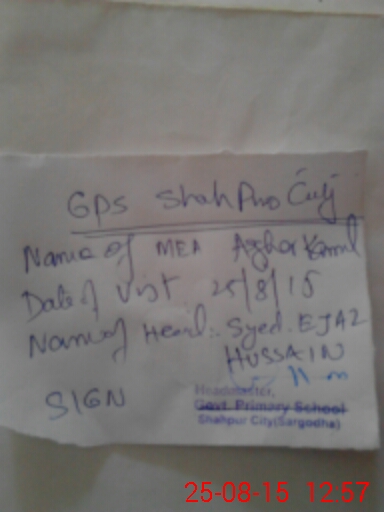 GPS Shah Pur City
Name of MEA Azhar Kamal
Date of Visit 25/8/15
Name of Head: Syed. EJAZ
HUSSAIN
SIGN
Headmaster,
Govt. Primary School
Shahpur City(Sargodha)
25-08-15 12:57